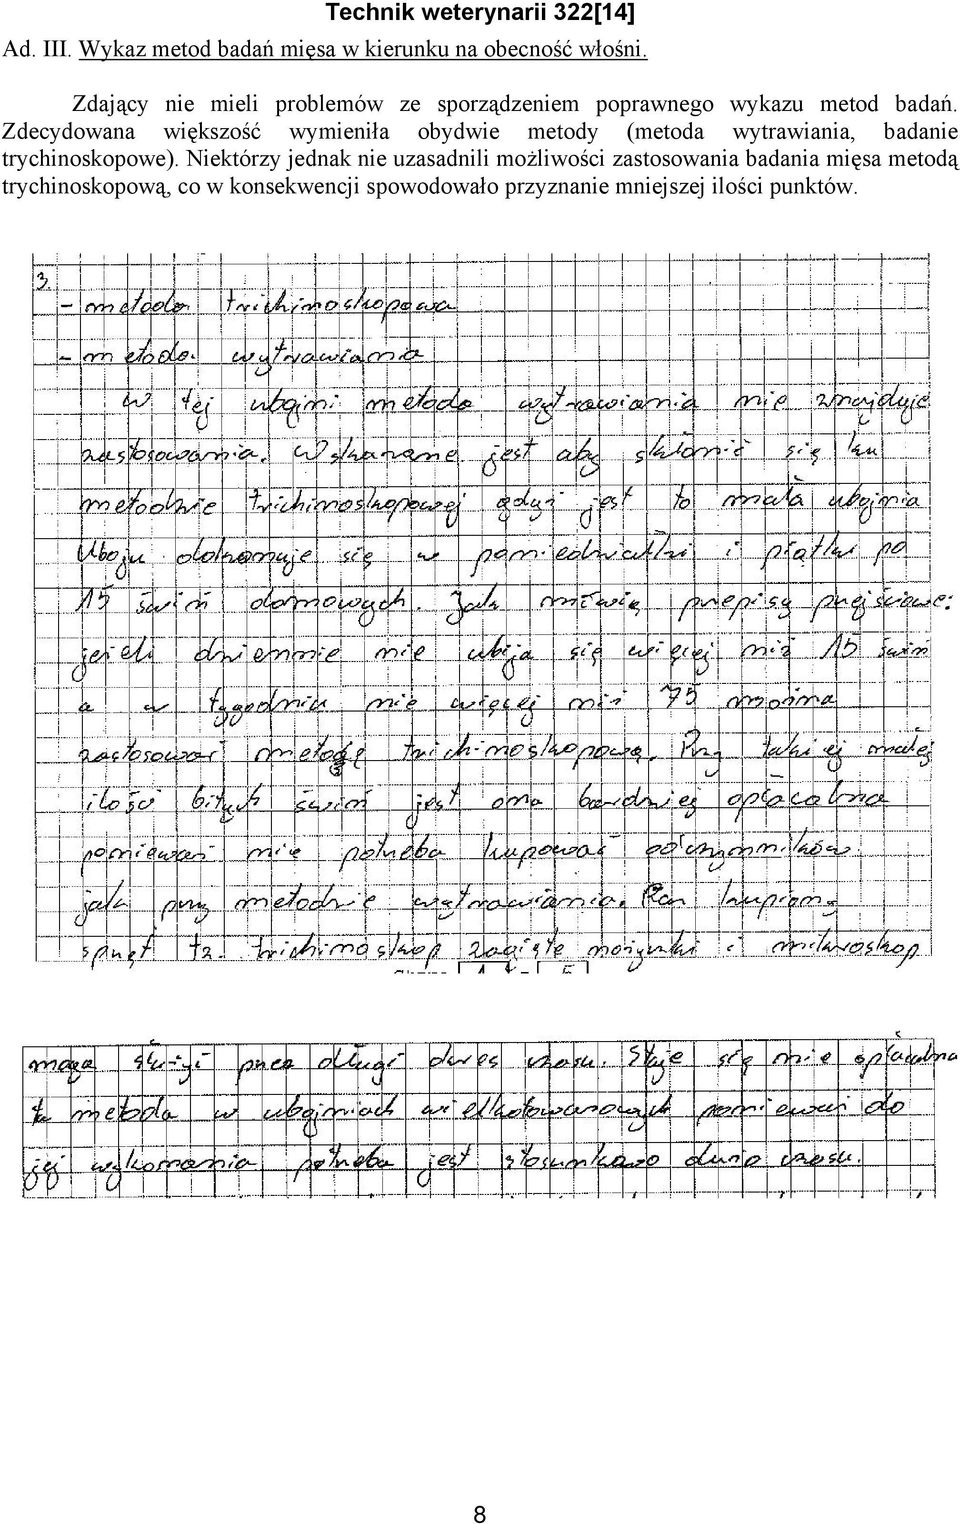 Technik weterynarii 322[14]
Ad. III. Wykaz metod badań mięsa w kierunku na obecność włośni.
Zdający nie mieli problemów ze sporządzeniem poprawnego wykazu metod badań.
Zdecydowana większość wymieniła obydwie metody (metoda wytrawiania, badanie
trychinoskopowe). Niektórzy jednak nie uzasadnili możliwości zastosowania badania mięsa metodą
trychinoskopową, co w konsekwencji spowodowało przyznanie mniejszej ilości punktów.
3.
- metoda trichinoskopowa
- metoda wytrawiania
W tej ubojni metoda wytrawiania nie znajduje
zastosowania. Wskazane jest aby skłonić się ku
metodzie trichinoskopowej gdyż jest to mała ubojnia
Uboju dokonuje się w poniedziałki i piątki po
15 świń domowych. Jak mówią przepisy przejściowe:
jeżeli dziennie nie ubija się więcej niż 15 świń
a w tygodniu nie więcej niż 75 można
zastosować metodę trichinoskopową. Przy takiej małej
ilości bitych świń jest ona bardziej opłacalna
ponieważ nie potrzeba kupować odczynników
jak przy metodzie wytrawiania. Raz kupiony
sprzęt tz. trichinoskop zagięte nożyczki i mikroskop
mogą służyć przez długi okres czasu. Staje się nie opłacalna
ta metoda w ubojniach wielkotowarowych ponieważ do
jej wykonania potrzeba jest stosunkowo dużo czasu.
8